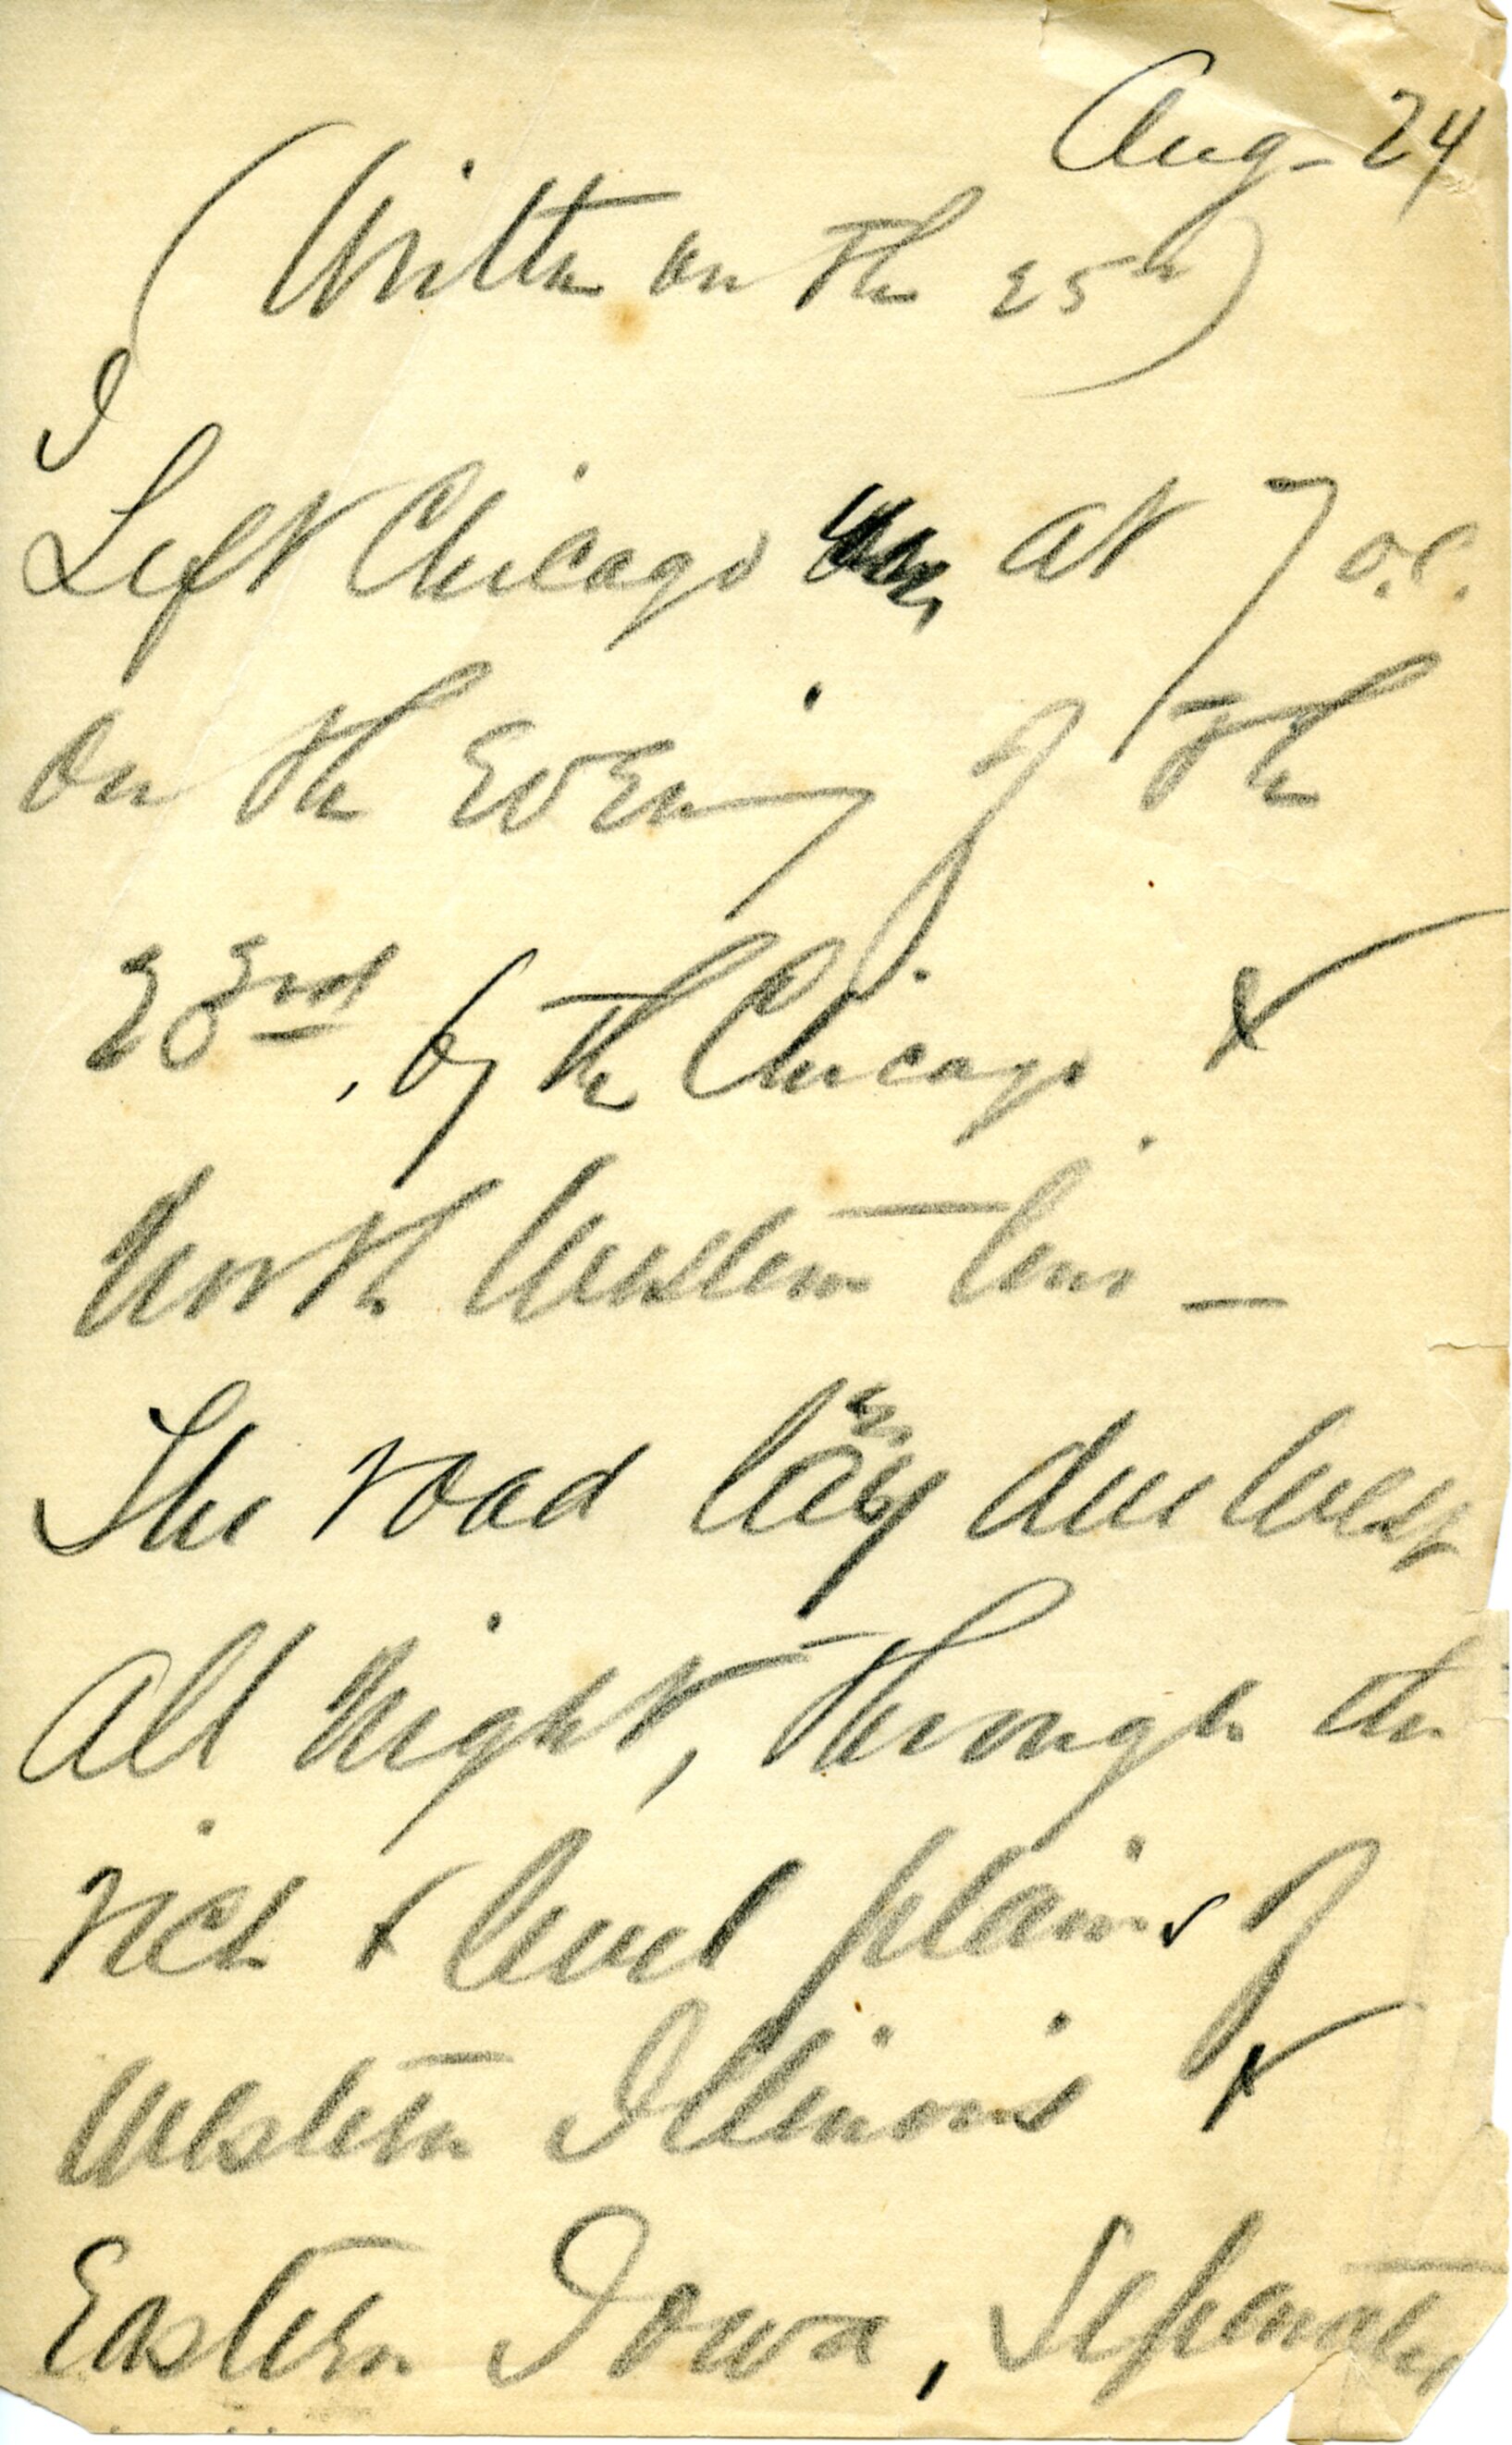 Aug - 24
(Written on the 25th)
I
Left Chicago at 7 o.c.
on the evening of the
23rd, by the Chicago &
North Western line —
The road lay due West
all night, through the
rich & level plains of
Western Illinois &
Eastern Iowa, seperated